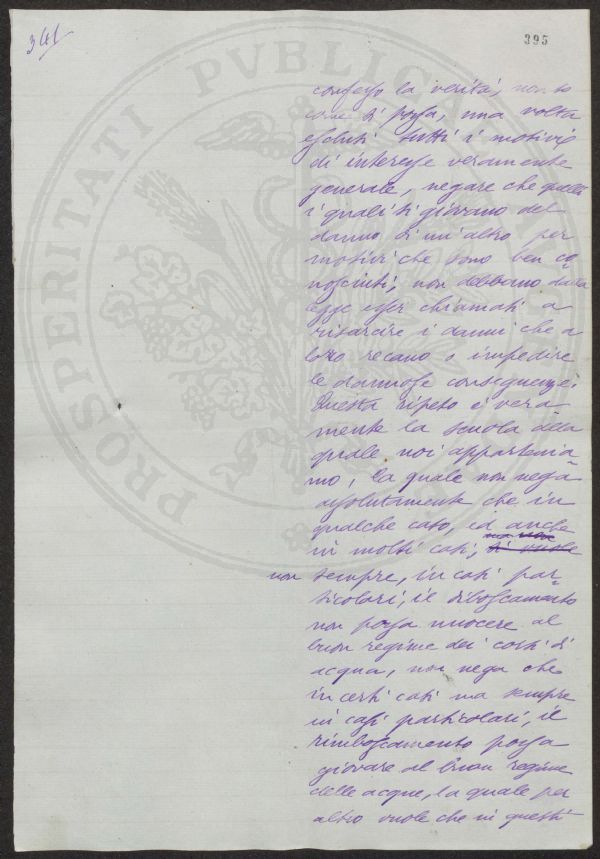 341
395
PROSPERITATI PVBLICAE
confesso la verità, non so
come si possa, una volta
esclusi tutti i motivi
di interesse veramente
generale, negare che quelli
i quali si giovano del
danno di un'altro per
motivi che sono ben co-
nosciuti, non debbano dalla
legge esser chiamati a
risarcire i danni che a
loro recano o impedire
le dannose conseguenze.
Questa ripeto è vera-
mente la scuola alla
quale noi appartenia-
mo, la quale non nega
assolutamente che in
qualche caso, ed anche
in molti casi, 
non sempre, in casi par-
ticolari, il diboscamento
non possa nuocere al
buon regime dei corsi di
acqua, non nega che
in certi casi ma sempre
in casi particolari, il
rimboscamento possa
giovare al buon regime
delle acque, la quale per
altro vuole che in questi